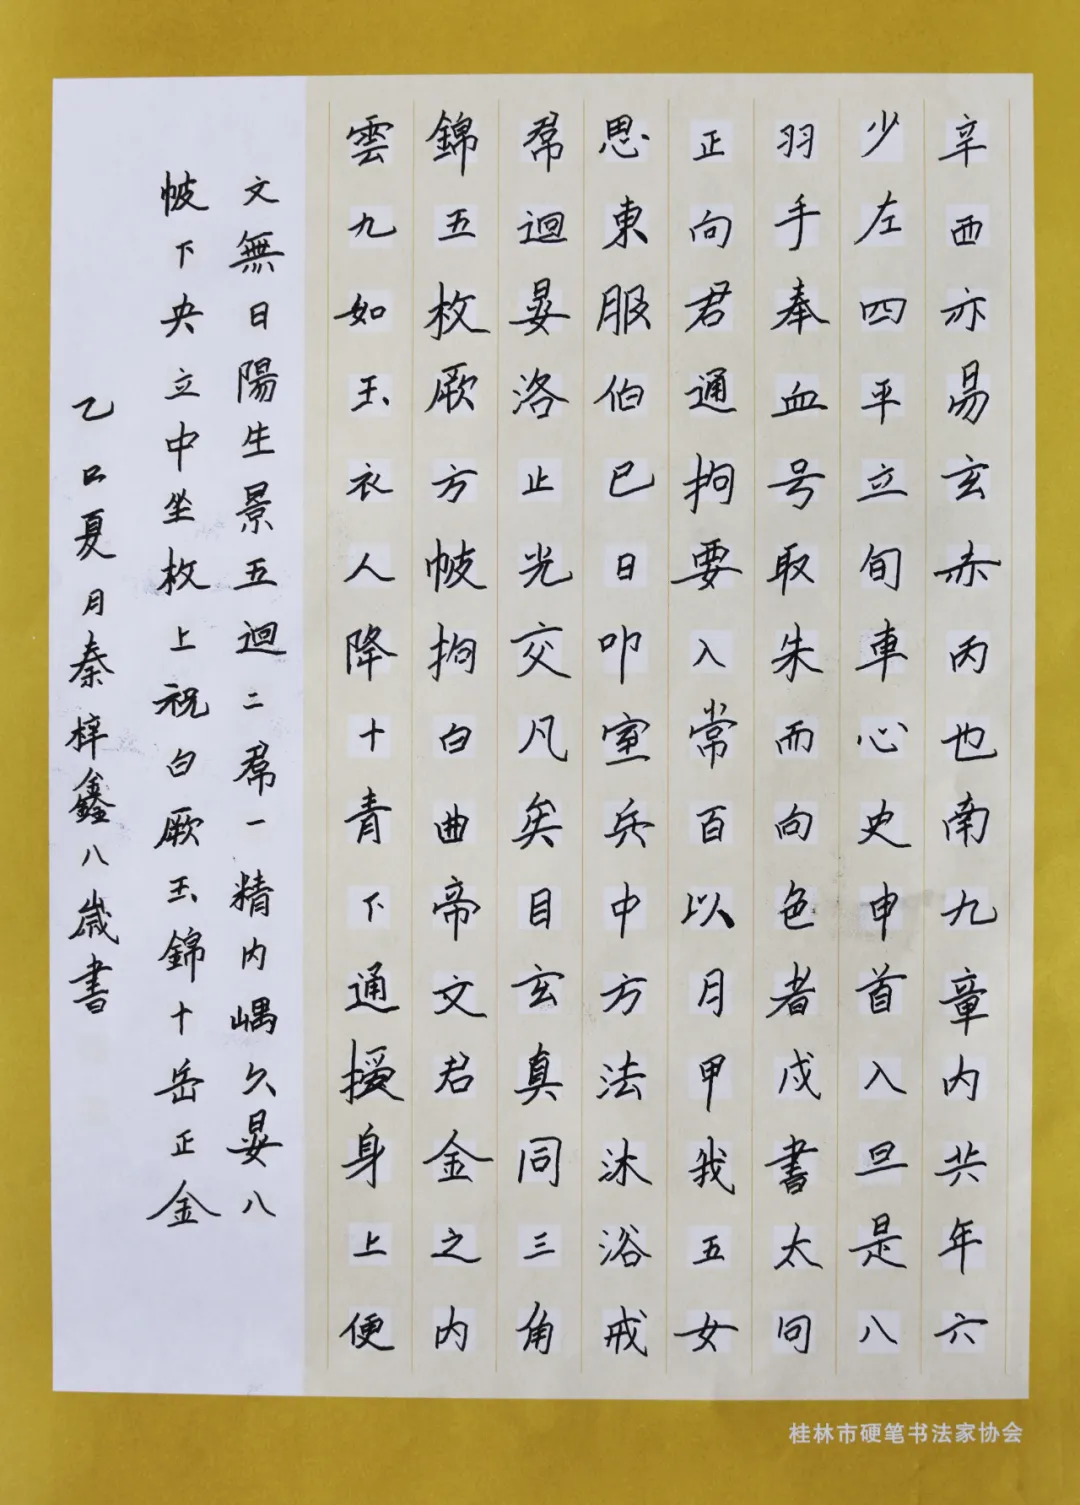 辛西亦易玄赤丙也南九章内共年六
少左四平立旬車心史申首入旦是八
羽手奉血号取朱而向色者戊書太同
正向君通拘要入常百以月甲我五女
思東服伯已日叩室兵中方法沐浴戒
羣迴晏洛止光交凡矣目玄真同三角
錦五枚厥方帔拘白曲帝文君金之内
雲九如玉衣人降十青下通授身上便
文無日陽生景五迴二羣一精内嵎久晏八
帔下央立中坐枚上祝白厥玉錦十岳正金
乙巳夏月秦梓鑫八歲書
桂林市硬笔书法家协会